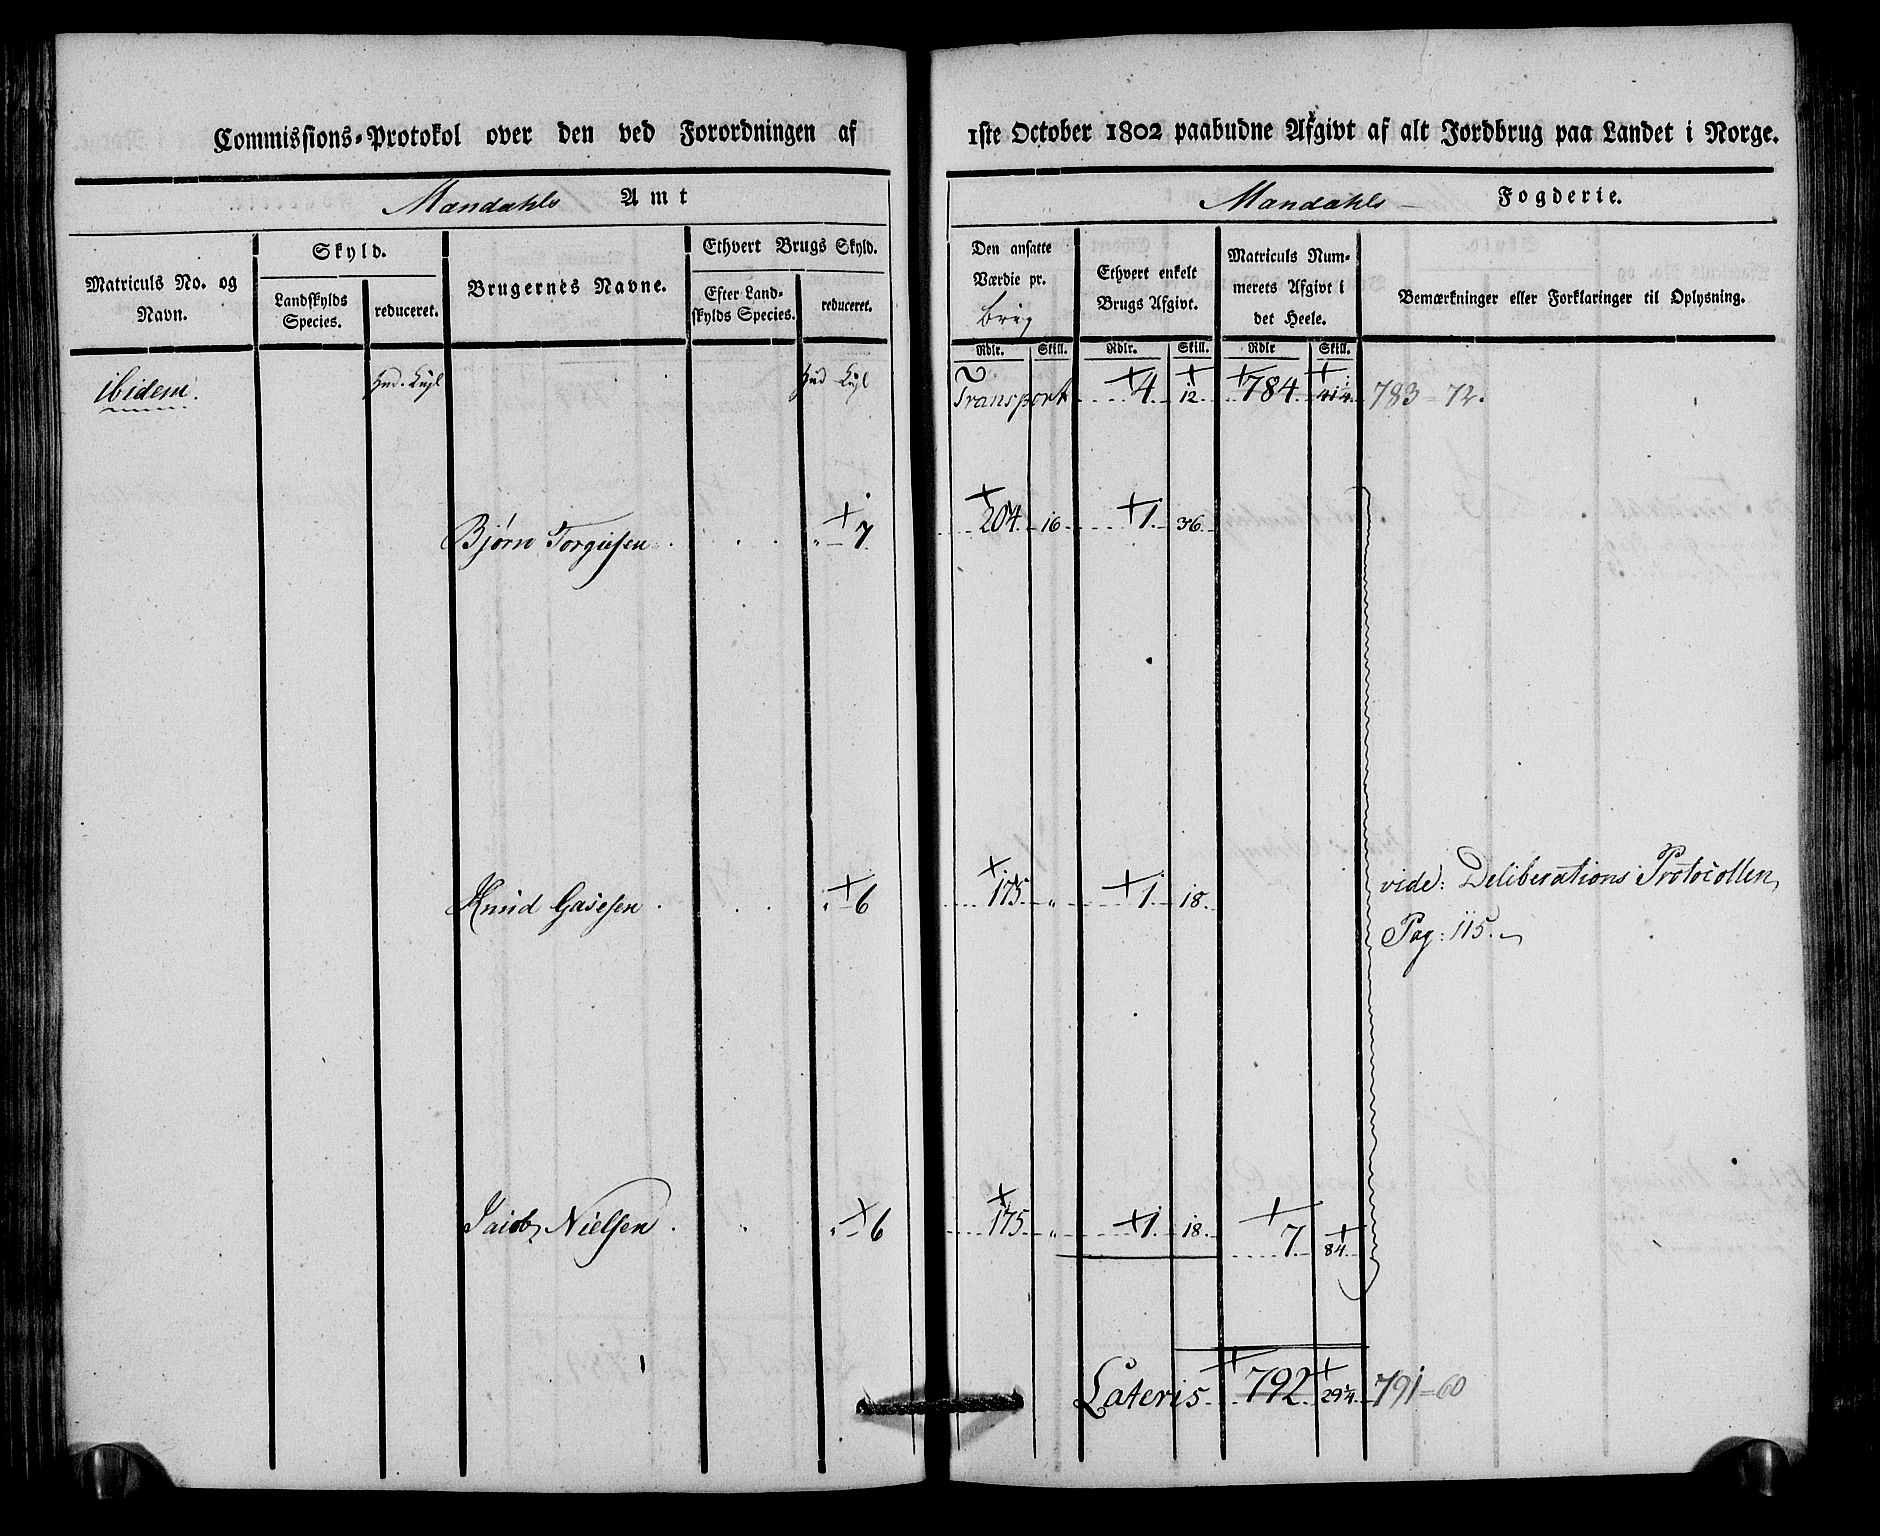 Commissions-Protokol over den ved Forordningen af 1ste October 1802 paabudne Afgivt af alt Jordbrug paa Landet i Norge.
Mandahls Amt
Mandahls Fogderie.
Matriculs No. og Navn.
Skyld.
Landskylds Species.
reduceret.
Brugernes Navne.
Ethvert Brugs Skyld.
Efter Landskylds Species.
reduceret.
Den ansatte Værdie pr.
Ethvert enkelt Brugs Afgivt.
Matriculs Nummerets Afgivt i det Heele.
Bemærkninger eller Forklaringer til Oplysning.
Rdlr. Skill. Rdlr. Skill. Rdlr Skill.
ibidem. Hud. Hud Transport 4. 12. 784. 783 = 72.
Bjørn 7 204. 16 1. 36.
Knud 6 175 „ 1. 18. vide: Deliberations Protocollen,
Pag: 115.
Jacob Nielsen 6 175 „ 1. 18. 7. 84.
Lateris 792. 29¼. 791 = 60